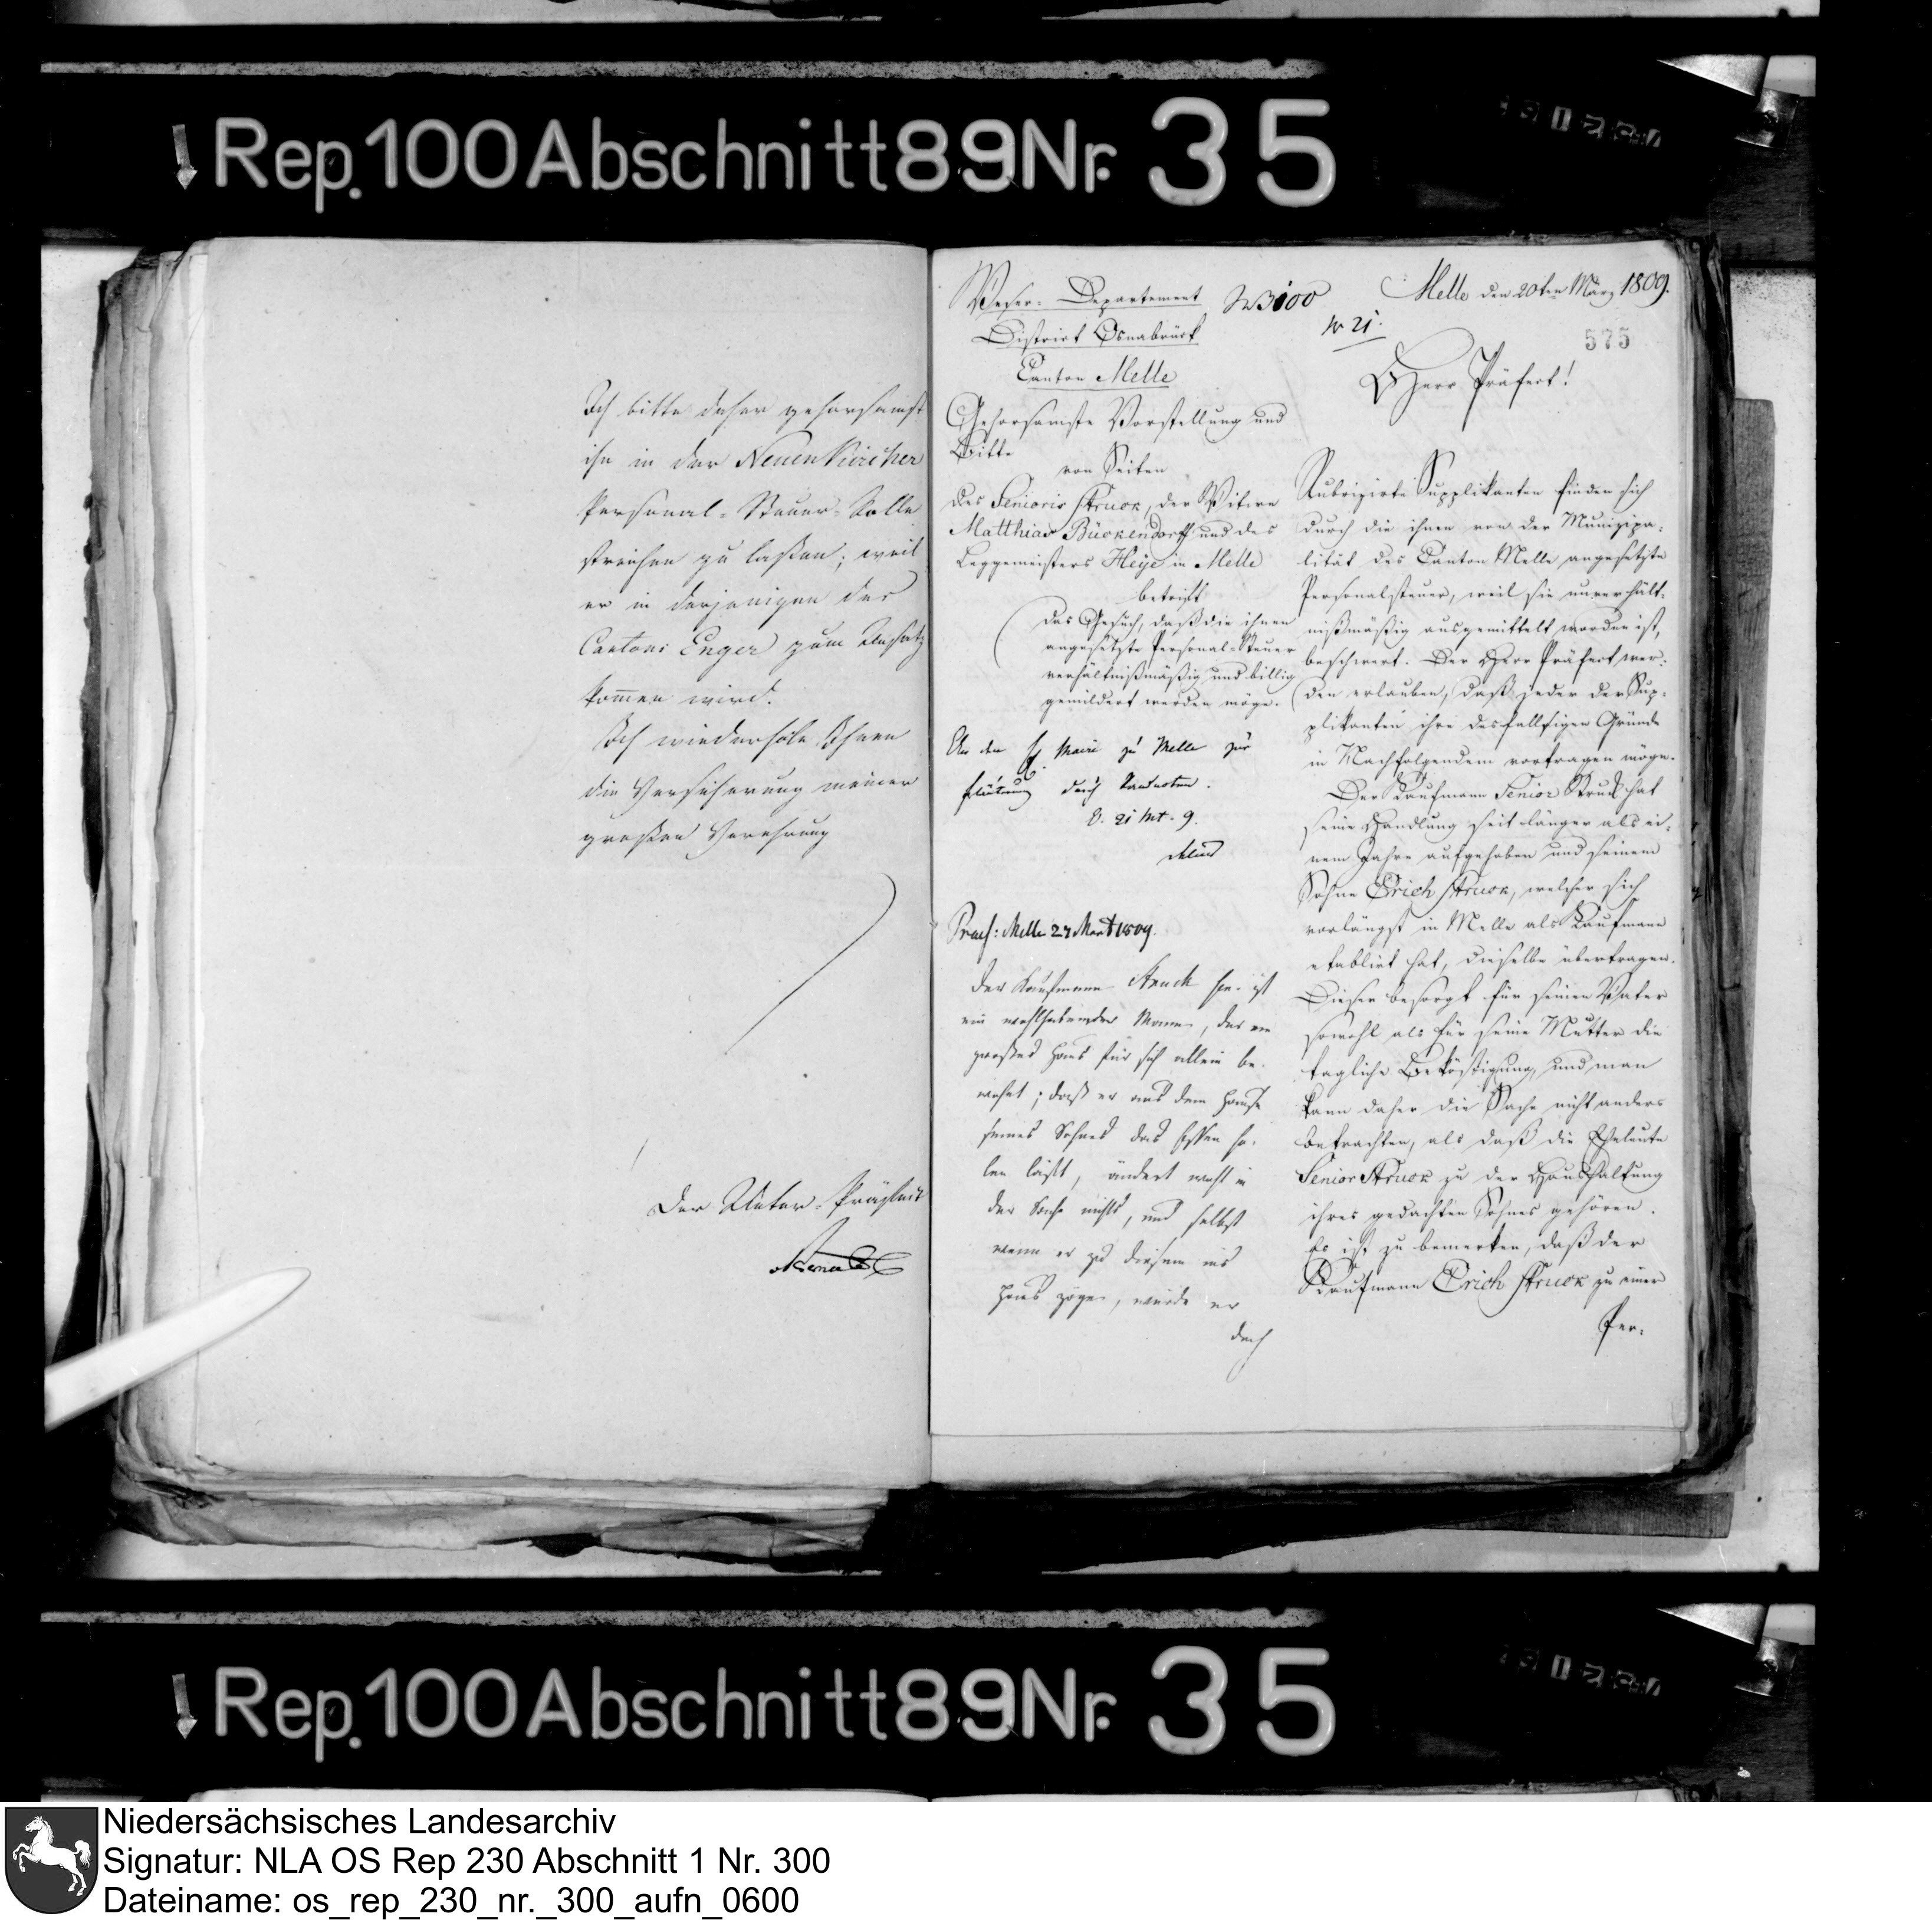 Rep. 100 Abschnitt 89 Nr. 35
Ich bitte daher gehorsamst
ihn in der Neuenkircher
Personal-Steuer-Rolle
streichen zu laßen; weil
er in derjenigen des
Cantons Enger zum Ansatz
kommen wird.
Ich wiederhole Ihnen
die Versicherung meiner
großen Verehrung
Der Unter-Präfect
Weser-Departement
District Osnabrück
Canton Melle
Gehorsamste Vorstellung und
Bitte
von Seiten
des Senioris Struck, der Witwe
Matthias Bückendorff und des
Leggemeisters Heye in Melle
betrift
das Gesuch, daß die ihnen
angesetzte Personal-Steuer
verhältnißmäßig und billig
gemildert werden möge.
An den H. Maire zu Melle zur
durch
O. 21 Mrt. 9.
Praes: Melle 27 Mart 1809.
Der Kaufmann Struck sen. ist
ein wohlhabender Mann, der ein
großes Haus für sich allein be-
wohnt; daß er aus dem Hause
seines Sohnes das Essen ho-
len läßt, ändert wohl in
der Sache nichts, und selbst
wenn er zu diesem ins
Haus zöge, würde er
doch
3100
Nr 21.
Melle den 20ten März 1809.
575
Herr Präfect!
Rubrizirte Supplikanten finden sich
durch die ihnen von der Munizipa-
lität des Canton Melle angesetzte
Personalsteuer, weil sie unverhält-
nißmäßig ausgemittelt worden ist,
beschwert. Der Herr Präfect wer-
den erlauben, daß jeder der Sup-
plikanten ihre desfallsigen Gründe
in Nachfolgendem vortragen möge.
Der Kaufmann Senior Struck hat
seine Handlung seit länger als ei-
nem Jahre aufgehoben und seinem
Sohne Erich Struck, welcher sich
vorlängst in Melle als Kaufmann
etablirt hat, dieselbe übertragen.
Dieser besorgt für seinen Vater
sowohl als für seine Mutter die
tagliche Beköstigung, und man
kann daher die Sache nicht anders
betrachten, als daß die Eheleute
Senior Struck zu der Haushaltung
ihres gedachten Sohnes gehören.
Es ist zu bemerken, daß der
Kaufmann Erich Struck zu einer
Per-
Rep. 100 Abschnitt 89 Nr. 35
Niedersächsisches Landesarchiv
Signatur: NLA OS Rep 230 Abschnitt 1 Nr. 300
Dateiname: os_rep_230_nr._300_aufn_0600